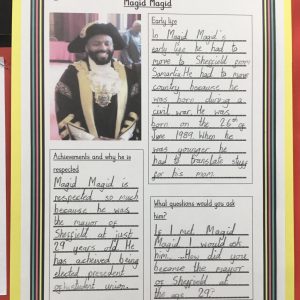 Magid Magid
Early life
In Magid Magid's
early life he had to
move to Sheffield from
Samartia. He had to move
country because he
was born during a
civil war. He was
born on the 26th of
June 1989. When he
was younger he
had to translate stuff
for his mom.
Achievements and why he is
respected
Magid Magid is
respected so much
because he was
the mayor of
Sheffield at just
29 years old. He
has achieved being
elected president
of student union.
What questions would you ask
him?
If I met Magid
Magid I would ask
him... How did you
become the mayor
of Sheffield at
the age 29?